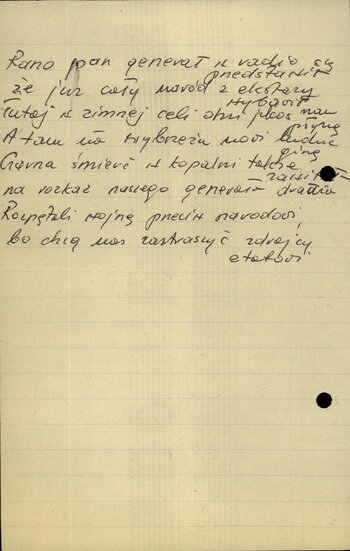 Rano pan generał w radio się
przedstawił
że już cały naród z ekstazy
wybawił
Tutaj w zimnej celi dni jakoś nam
płyną
A tam na wybrzeżu nowi ludzie
giną
Czarna śmierć w kopalni także
zawitała
na rozkaz naszego generała drania
Rozpętali wojnę przeciw narodowi,
bo chcą nas zastraszyć zdrajcy
etatowi